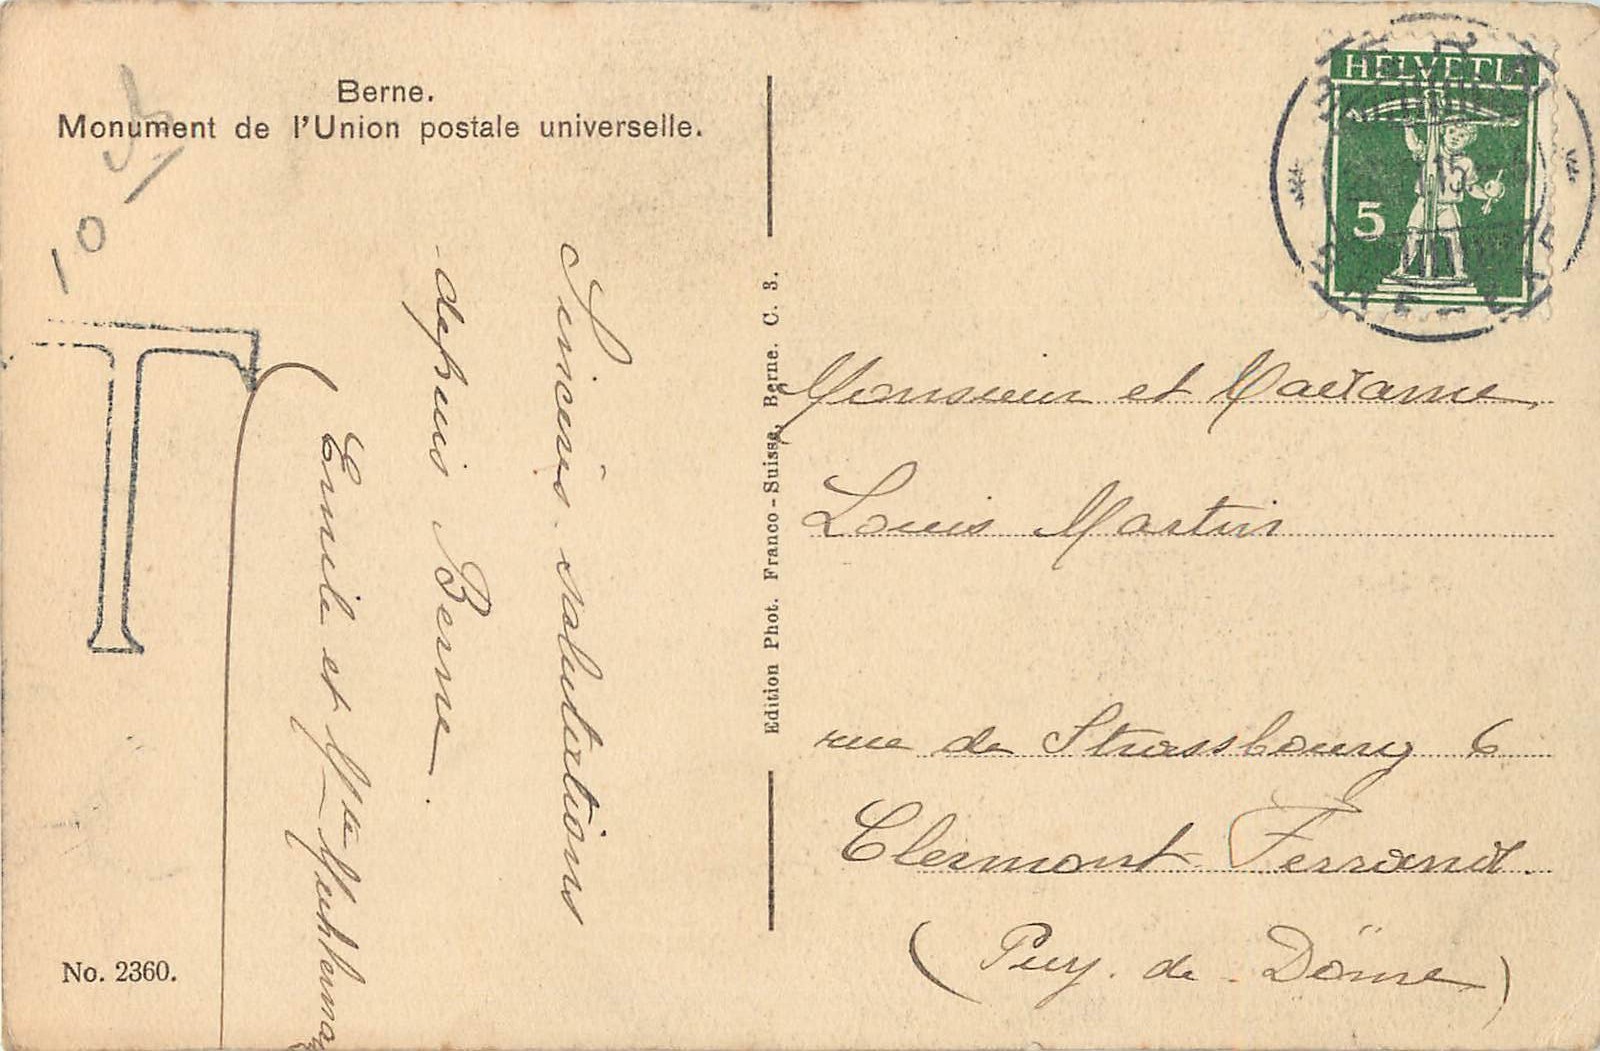 Berne.
Monument de l'Union postale universelle.
10
T
Sincères salutations
depuis Berne.
Emile et
No. 2360.
Edition Phot. Franco-Suisse, Berne. C. 3.
HELVETIA
5
Monsieur et Madame
Louis Martin
rue de Strassbourg 6
Clermont-Ferrand.
(Puy. de Döme)